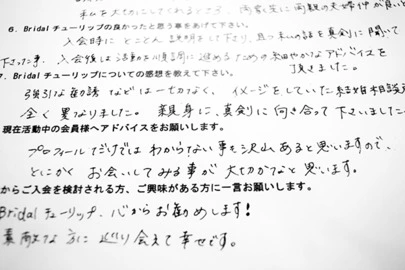 私を大切にしてくれるところ、両家共に両親の夫婦仲が良い
6. Bridal チューリップの良かったと思う事をあげて下さい。
入会時にとことん説明をして下り、且つ私の話を真剣に聞いて
下さった事、入会後は活動が順調に進めるための細やかなアドバイスを
頂きました。
7. Bridal チューリップについての感想を教えて下さい。
強引な勧誘などは一切なく、イメージをしていた結婚相談
全く異なりました。親身に、真剣に向き合って下さいました
現在活動中の会員様へアドバイスをお願いします。
プロフィールだけではわからない事も沢山あると思いますので、
とにかくお会いしてみる事が大切かなと思います。
からご入会を検討される方、ご興味がある方に一言お願いします。
Bridal チューリップ、心からお勧めします!
素敵な方に巡り会えて幸せです。